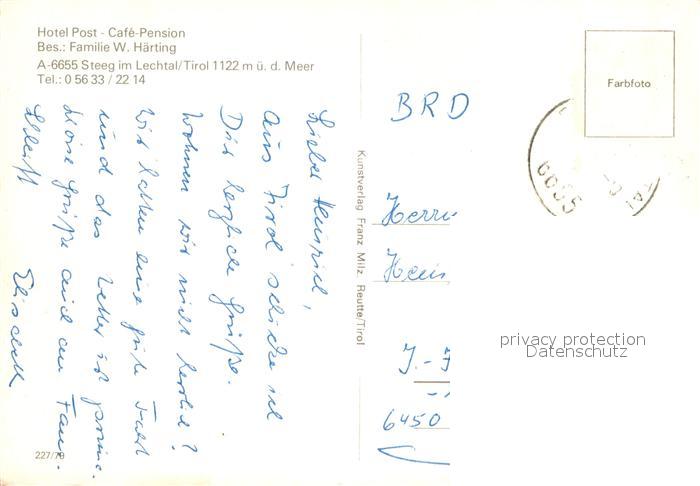 Hotel Post - Café-Pension
Bes.: Familie W. Härting
A-6655 Steeg im Lechtal/Tirol 1122 m ü. d. Meer
Tel.: 0 56 33 / 22 14
Lieber Heinrich,
aus Tirol schicke ich
Dir herzliche Grüße.
Wohnen wir nicht herrlich?
Wir hatten eine gute Fahrt
und das Wetter ist prima.
Grüße auch an Fam.
Elisabeth
227/79
Kunstverlag Franz Milz, Reutte/Tirol
Farbfoto
6655
BRD
Herrn
Hein
J.-J
6450
privacy protection
Datenschutz